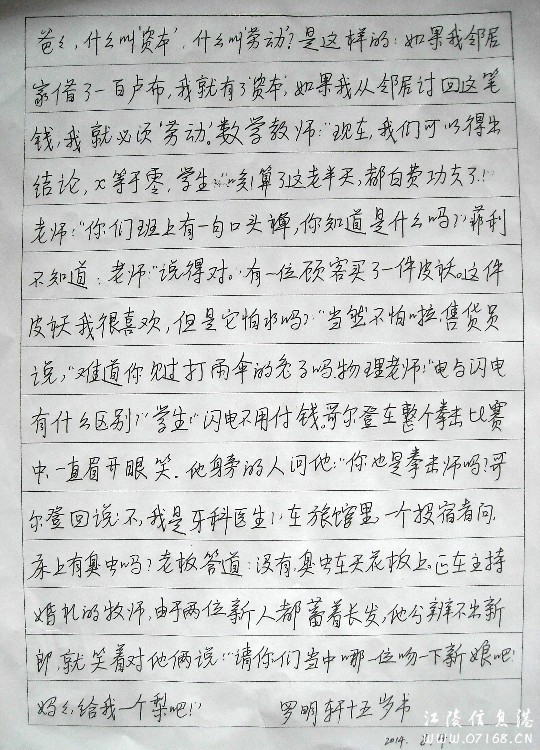 爸々，什么叫"资本"，什么叫"劳动"？是这样的：如果我邻居
家借了一百卢布，我就有了"资本"，如果我从邻居讨回这笔
钱，我就必须"劳动"。数学教师："现在，我们可以得出
结论，x等于零，学生："唉！算了这老半天，都白费功夫了！"
老师："你们班上有一句口头禅，你知道是什么吗？"菲利
不知道：老师："说得对。"有一位顾客买了一件皮妖。"这件
皮妖我很喜欢，但是它怕水吗？""当然不怕啦，售货员
说，"难道你见过打雨伞的兔子吗？物理老师："电与闪电
有什么区别？"学生："闪电不用付钱。哥尔登在整个拳击比赛
中一直眉开眼笑。他身旁的人问他："你也是拳击师吗？哥
尔登回说："不，我是牙科医生！"在旅馆里，一个投宿者问，
床上有臭虫吗？老板答道：没有，臭虫在天花板上。正在主持
婚礼的牧师，由于两位新人都蓄着长发，他分辨不出新
郎，就笑着对他俩说："请你们当中哪一位吻一下新娘吧！
妈々，给我一个梨吧！" 罗明轩十五岁书
2014. 2.4
江陵信息港
www.07168.CN